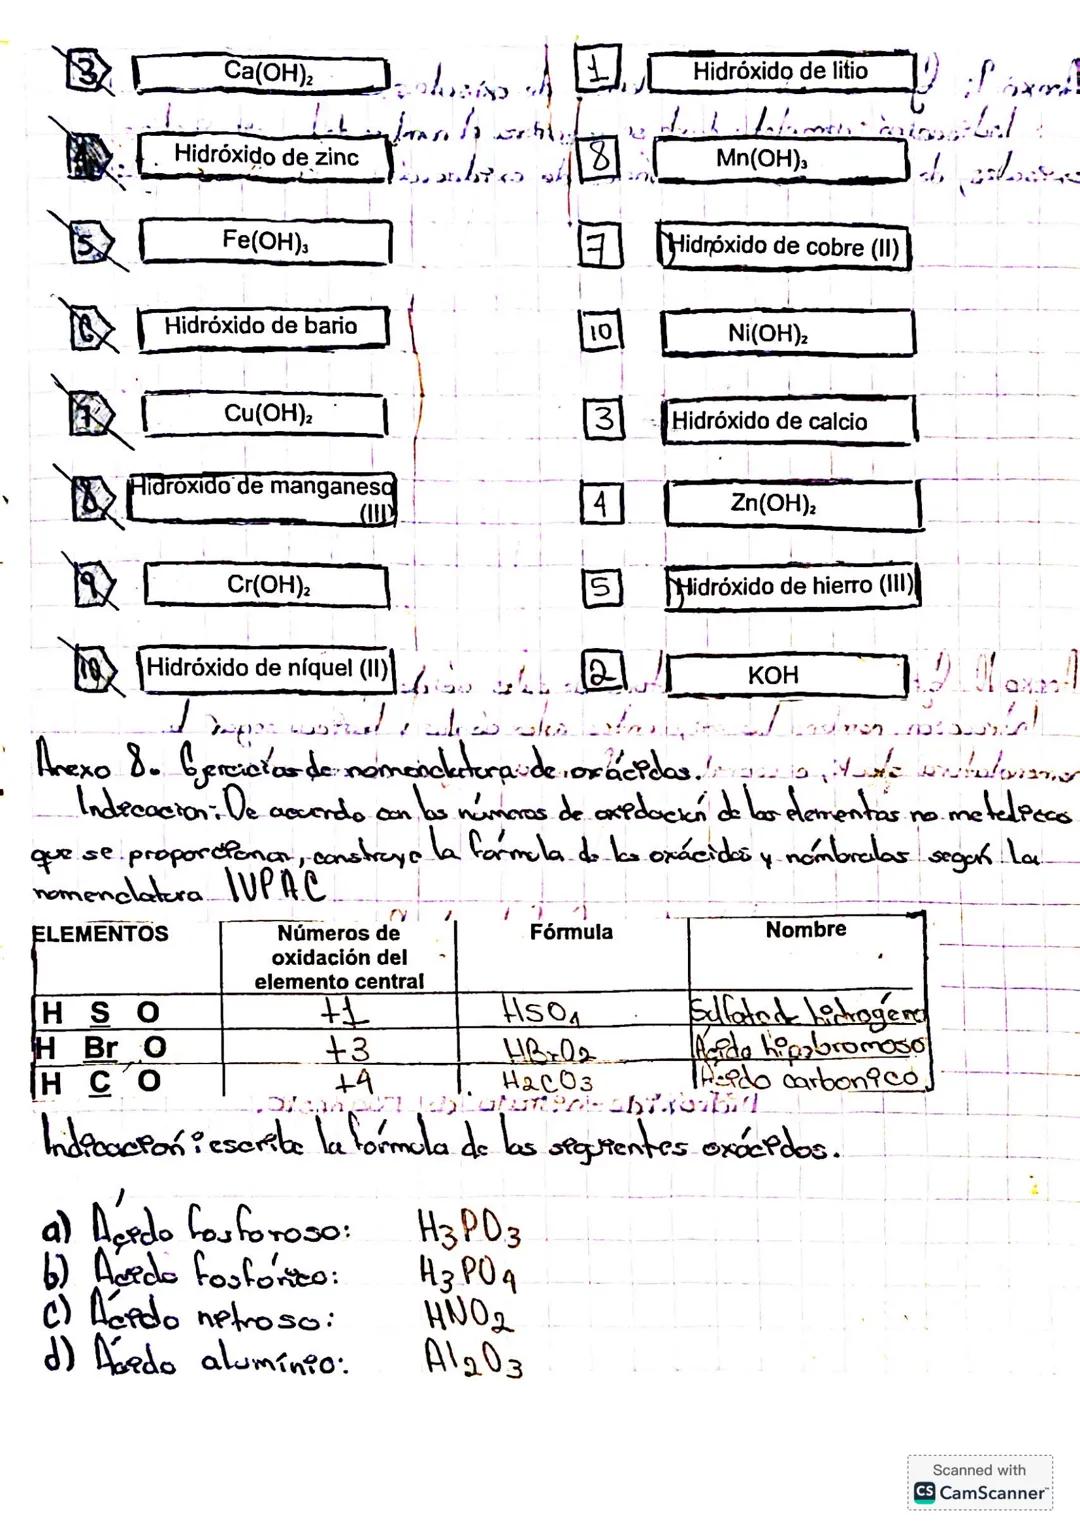 3 Ca(OH)₂ 1 Hidróxido de litio
Hidróxido de zinc 8 Mn(OH)₃
5 Fe(OH)₃ 7 Hidróxido de cobre (II)
6 Hidróxido de bario 10 Ni(OH)₂
7 Cu(OH)₂ 3 Hidróxido de calcio
8 Hidróxido de manganeso (III) 4 Zn(OH)₂
9 Cr(OH)₂ 5 Hidróxido de hierro (III)
10 Hidróxido de níquel (II) 2 KOH
Anexo 8. Ejercicios de nomenclatura de oxácidos.
Indicación: De acuerdo con los números de oxidación de los elementos no metálicos
que se proporcionan, construye la fórmula de los oxácidos y nómbralas según la
nomenclatura IUPAC
ELEMENTOS Números de oxidación del elemento central Fórmula Nombre
H S O +1 HSO₄ Sulfato de hidrógeno
H Br O +3 HBrO₂ Ácido hipobromoso
H C O +4 H₂CO₃ Ácido carbonico.
Indicación: escribe la fórmula de los siguientes oxácidos.
a) Ácido fosforoso: H₃PO₃
b) Ácido fosfórico: H₃PO₄
c) Ácido nitroso: HNO₂
d) Ácido alumínio: Al₂O₃
Scanned with
CS CamScanner